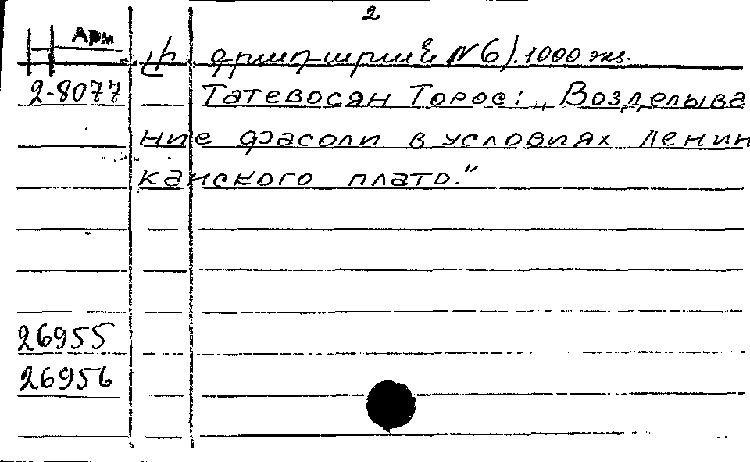 2
Арм
գրադարան N 6). 1000 экз.
2-8077 Татевосян Торос: „Возделыва
ние фасоли в условиях Ленин
канского плато."
26955
26956